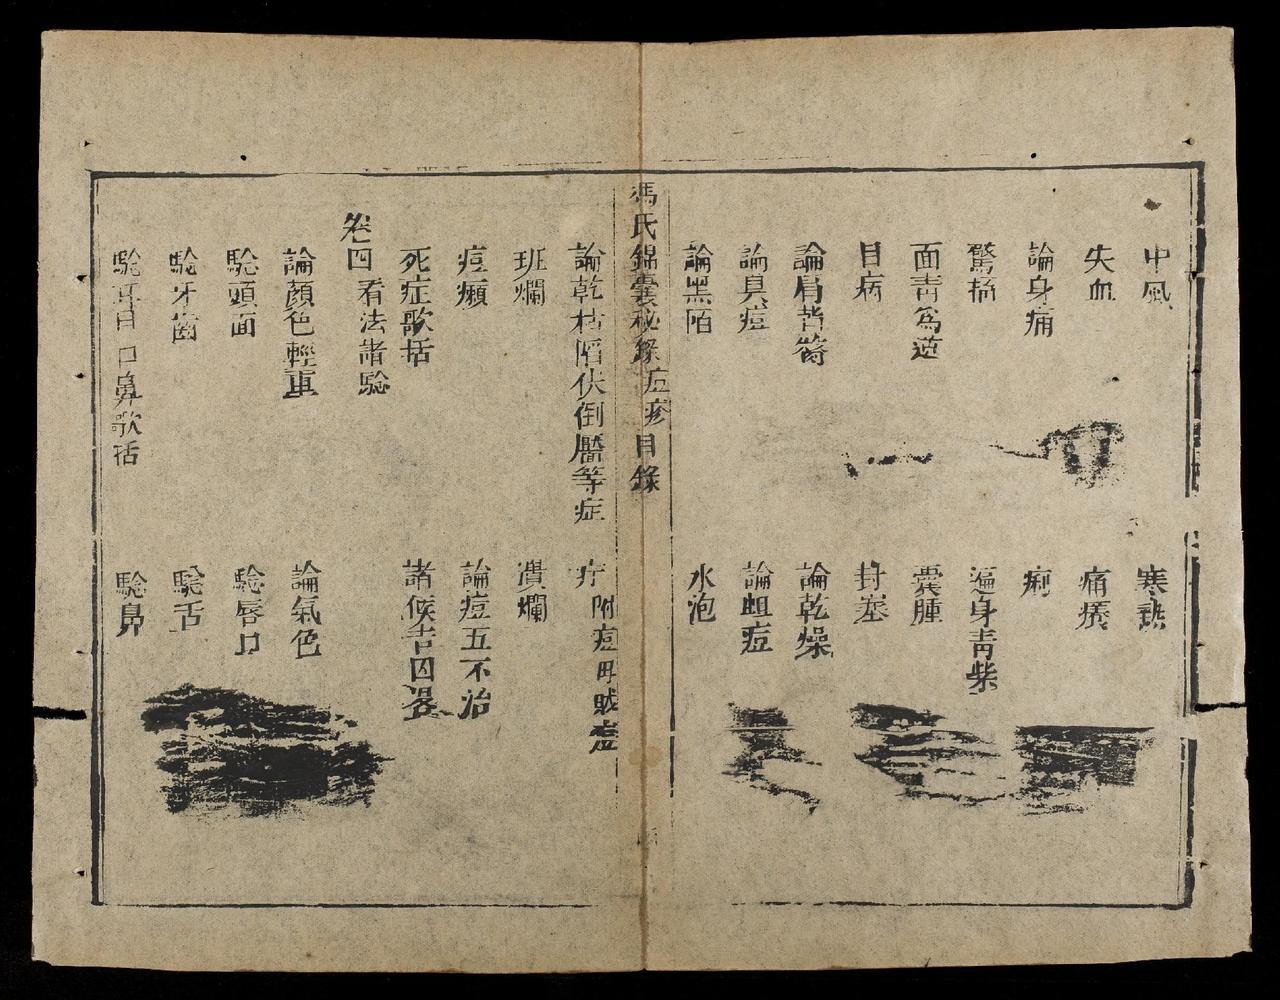 中風 寒熱
失血 痛癢
論身痛 痢
驚搐 遍身青紫
面青爲逆 囊腫
目病 封塞
論肩背 論乾燥
論臭痘 論蛆痘
論黑陷 水泡
馮氏錦囊秘錄痘疹目錄
論乾枯陷伏倒靨等症
疔附痘母賊痘
班爛 潰爛
痘癩 論痘五不治
死症歌括 諸候吉凶
卷四看法諸驗
論顏色輕重 論氣色
驗頭面 驗唇口
驗牙齒 驗舌
驗耳目口鼻歌括 驗鼻